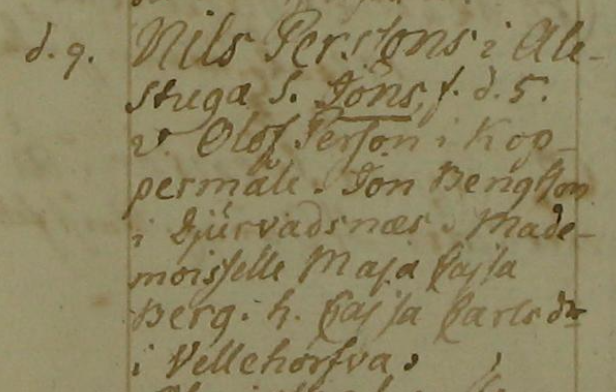 d. 9. Nils Persſons i Ale-
stuga S. Jöns, f. d. 5.
v. Olof Perſon i Kop-
permåle. Jon Bengtſon
i Djurvadsnæs. Made-
moisſelle Maja Cajſa
Berg. h. Cajſa Carlsdr
i Vellehorfva,